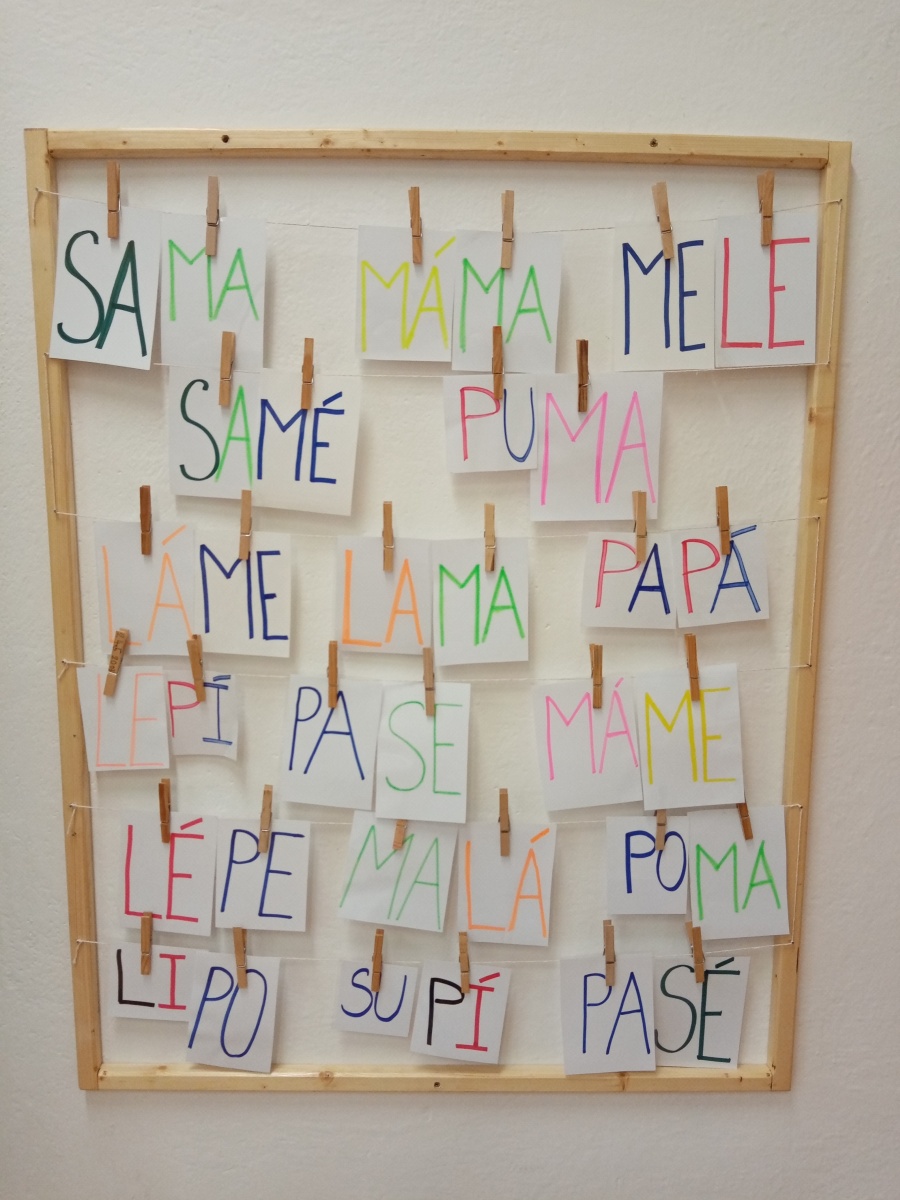 SAMA MÁMA MELE
SAMÉ PUMA
LÁME LAMA PAPÁ
LEPÍ PASE MÁME
LÉPE MALÁ POMA
LIPO SUPÍ PASÉ